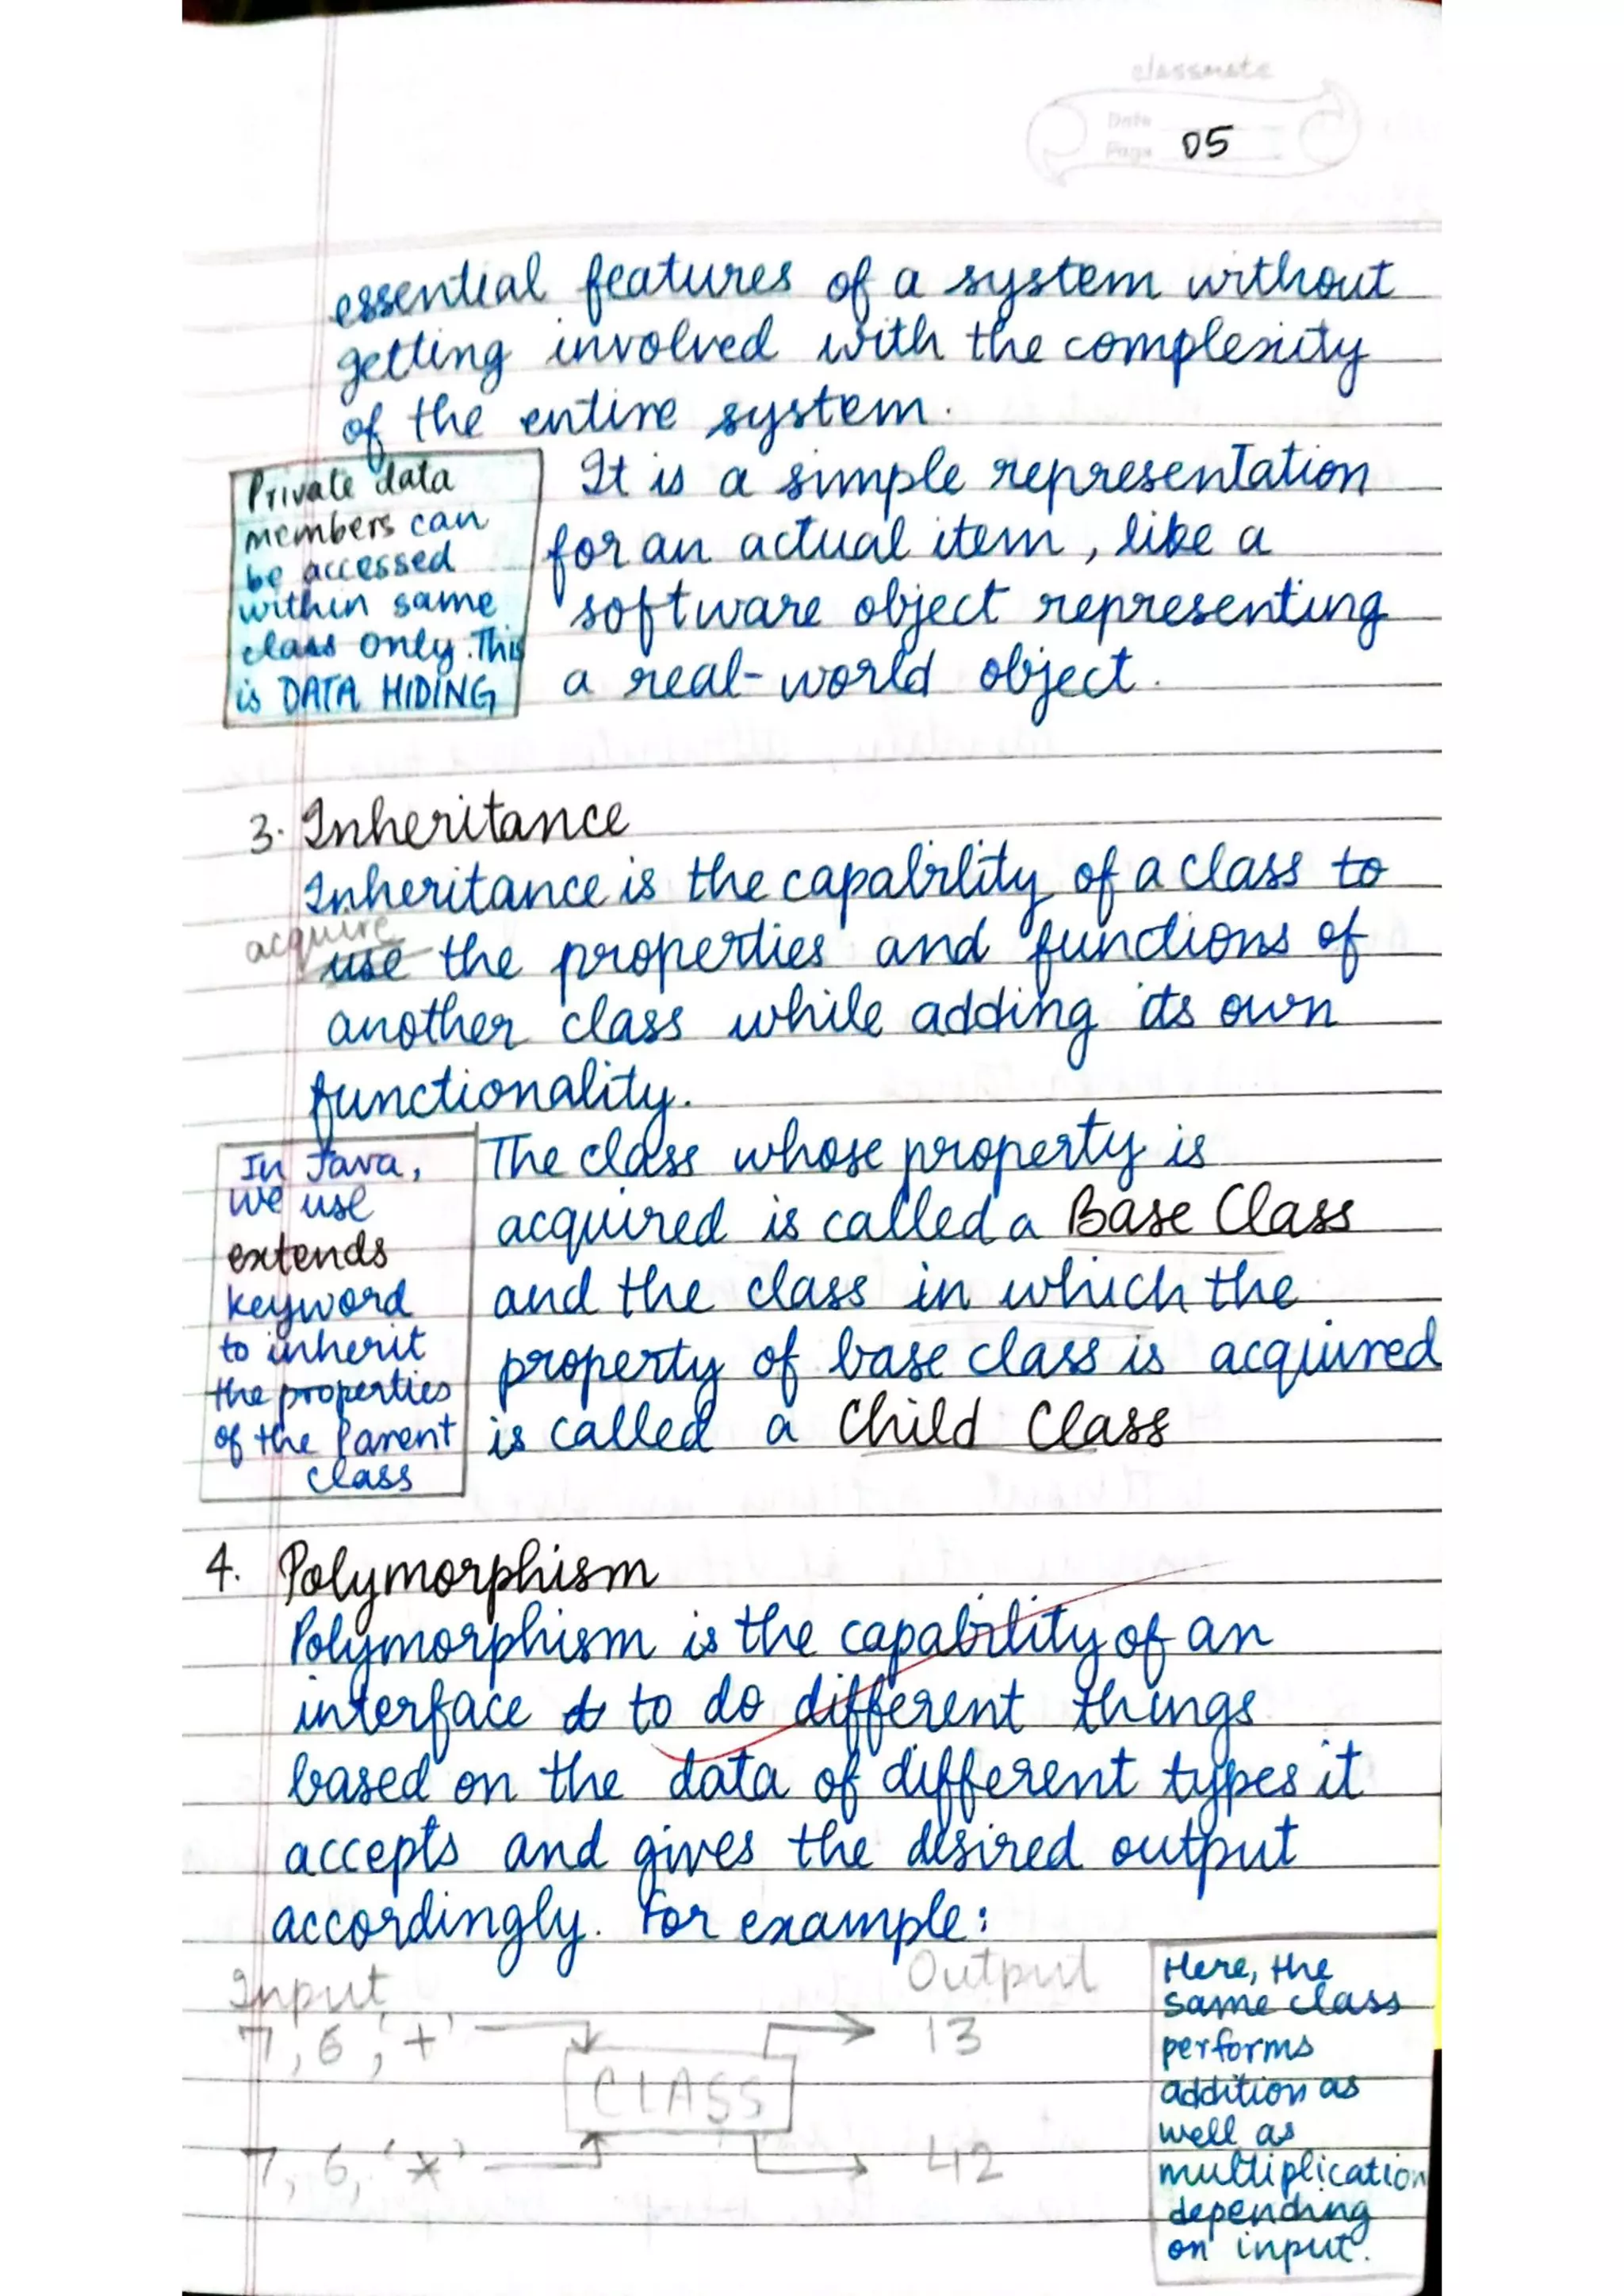 classmate
Date
Page 05
essential features of a system without
getting involved with the complexity
of the entire system.
Private data
members can
be accessed
within same
class only. This
is DATA HIDING
It is a simple representation
for an actual item, like a
software object representing
a real-world object.
3. Inheritance
Inheritance is the capability of a class to
acquire
use the properties and functions of
another class while adding its own
functionality.
In Java,
we use
extends
keyword
to inherit
the properties
of the Parent
class
The class whose property is
acquired is called a Base Class
and the class in which the
property of base class is acquired
is called a Child Class
4. Polymorphism
Polymorphism is the capability of an
interface to do different things
based on the data of different types it
accepts and gives the desired output
accordingly. For example:
Input Output
7, 6, '+' 13
CLASS
7, 6, '*' 42
Here, the
same class
performs
addition as
well as
multiplication
depending
on input.